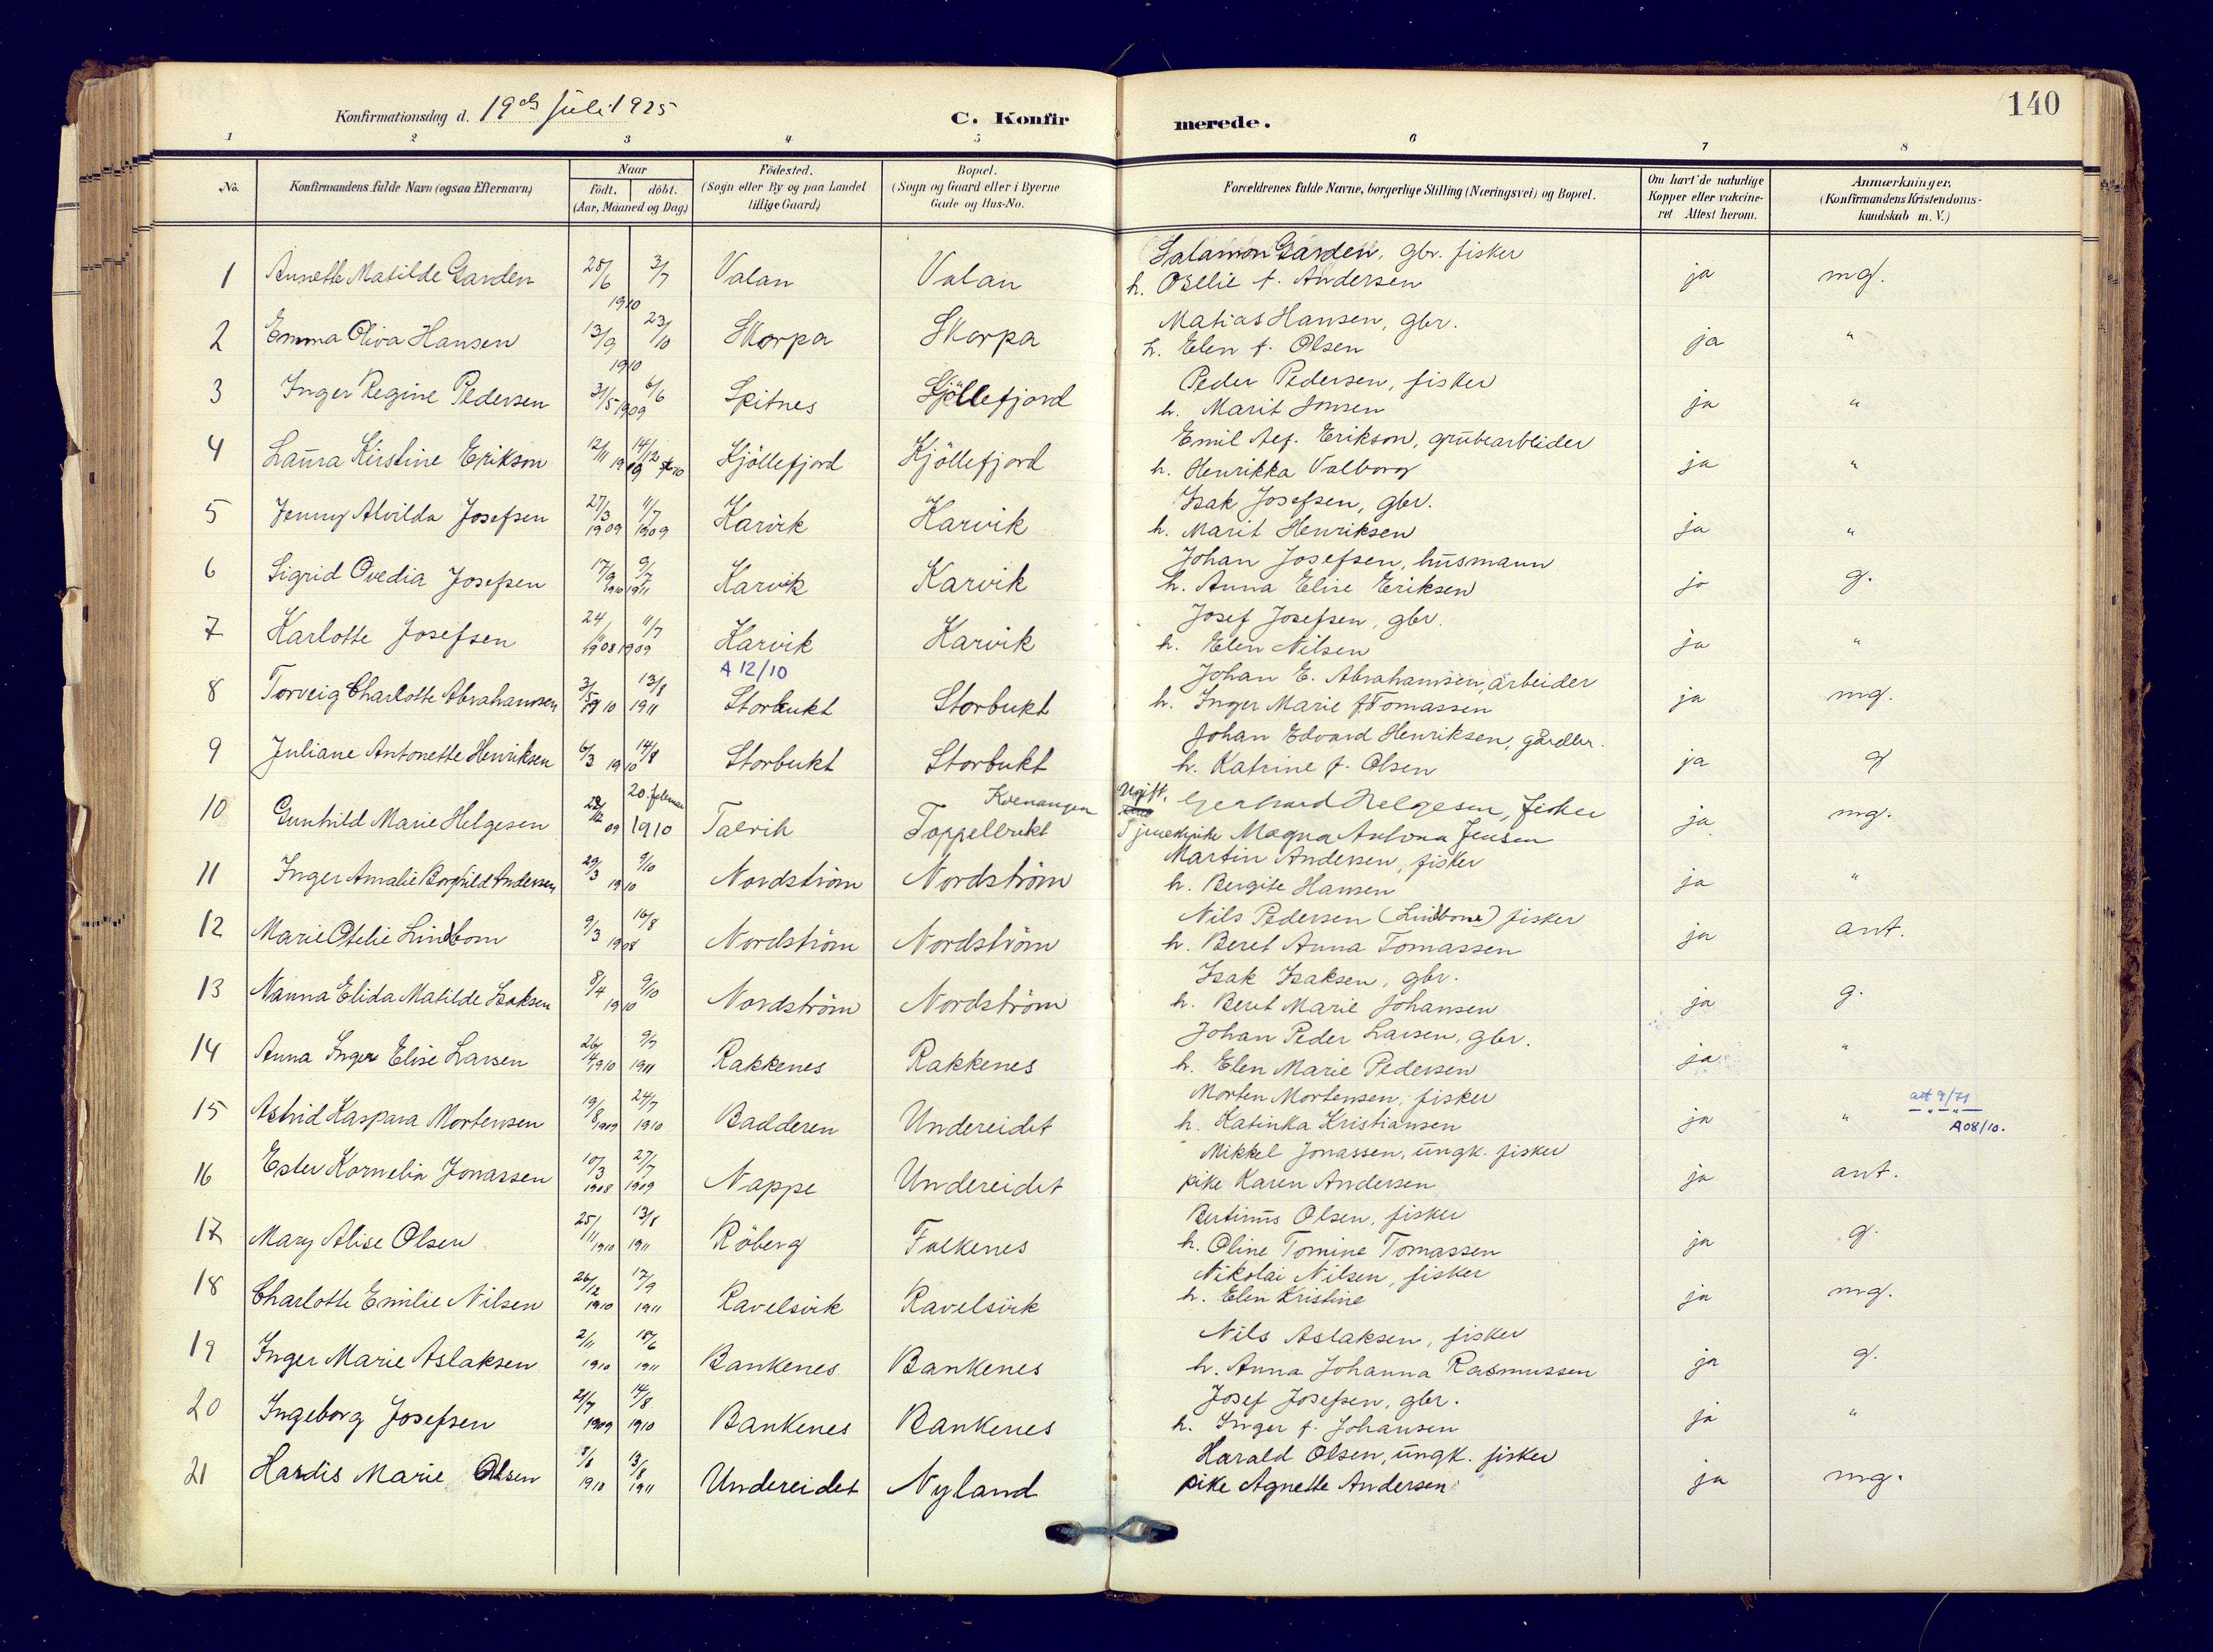 Konfirmationsdag d. 19de juli 1925
C. Konfirmerede.
140
1 2 3 4 5 6 7 8
No.
Konfirmandens fulde Navn (ogsaa Efternavn)
Naar
født. døbt.
(Aar, Maaned og Dag)
Fødested.
(Sogn eller By og paa Landet
tillige Gaard)
Bopæl.
(Sogn og Gaard eller i Byerne
Gade og Hus-No.
Forældrenes fulde Navne, borgerlige Stilling (Næringsvei) og Bopæl.
Om havt de naturlige
Kopper eller vakcine-
ret Attest herom.
Anmærkninger.
(Konfirmandens Kristendoms-
kundskab m. V.)
1 Annette Matilde Garden 3/7 1910 Valan Valan Salamon Garden, gbr. fisker
h. f. Andersen ja mg.
2 Emma Oliva Hansen 13/9 23/10 1910 Skorpa Skorpa Matias Hansen, gbr.
h. Elen f. Olsen ja "
3 Inger Regine Pedersen 31/5 6/6 1909 Spitnes Kjöllefjord Peder Pedersen, fisker
h. Marit Jonsen ja "
4 Laura Kirstine Erikson 12/11 14/12 1909 Kjöllefjord Kjöllefjord Emil Erikson, grubearbeider
h. Henrikka Valborg ja "
5 Jenny Alvilda Josefsen 27/3 1909 11/7 1909 Karvik Karvik Isak Josefsen, gbr.
h. Marit Henriksen ja "
6 Sigrid Ovedia Josefsen 17/9 1910 9/7 1911 Karvik Karvik Johan Josefsen, husmann
h. Anna Elise Eriksen ja g.
7 Karlotte Josefsen 24/11 1908 11/7 1909 Karvik Karvik Josef Josefsen, gbr.
h. Elen Nilsen ja "
A 12/10
8 Torveig Charlotte Abrahamsen 3/5 1910 13/8 1911 Storbukt Storbukt Johan E. Abrahamsen, arbeider
h. Inger Marie f. Tomassen ja mg.
9 Juliane Antonette Henriksen 6/3 14/8 1910 Storbukt Storbukt Johan Edvard Henriksen, gårdbr.
h. Katrine f. Olsen ja g
10 Gunhild Marie Helgesen 09 20. februar 1910 Talvik Kvenangen Toppelbukt Ugift. Gerhard Helgesen, fisker
Tjenestpike Magna Antona Jensen ja mg.
11 Inger Amalie Borghild Andersen 29/3 9/10 1910 Nordström Nordström Martin Andersen, fisker
h. Bergite Hansen ja "
12 Marie Otelie Lindbom 9/3 16/8 1908 Nordström Nordström Nils Pedersen (Lindbom) fisker
h. Beret Anna Tomassen ja ant.
13 Nanna Elida Matilde Isaksen 8/4 9/10 1910 Nordström Nordström Isak Isaksen, gbr.
h. Beret Marie Johansen ja g.
14 Anna Inger Elise Larsen 26/4 1910 9/7 1911 Rakkenes Rakkenes Johan Peder Larsen, gbr.
h. Elen Marie Pedersen ja "
15 Astrid Kaspara Mortensen 19/8 1909 24/7 1910 Badderen Undereidet Morten Mortensen, fisker
h. Katinka Kristiansen ja "
att 9/71
A08/10.
16 Ester Kornelia Jonassen 10/3 1908 27/7 1909 Nappe Undereidet Mikkel Jonassen, ungk. fisker
pike Karen Andersen ja ant.
17 Mary Alise Olsen 25/11 1910 13/8 1911 Röberg Falkenes Bertinus Olsen, fisker
h. Oline Tomine Tomassen ja g.
18 Charlotte Emilie Nilsen 26/12 1910 17/9 1911 Ravelsvik Ravelsvik Nikolai Nilsen, fisker
h. Elen Kristine ja mg.
19 Inger Marie Aslaksen 2/11 1910 18/6 1911 Bankenes Bankenes Nils Aslaksen, fisker
h. Anna Johanna Rasmussen ja g.
20 Ingeborg Josefsen 21/7 1909 14/8 1910 Bankenes Bankenes Josef Josefsen, gbr.
h. Inger f. Johansen ja "
21 Hardis Marie Olsen 1910 13/8 1911 Undereidet Nyland Harald Olsen, ungk. fisker
pike Agnette Andersen ja mg.